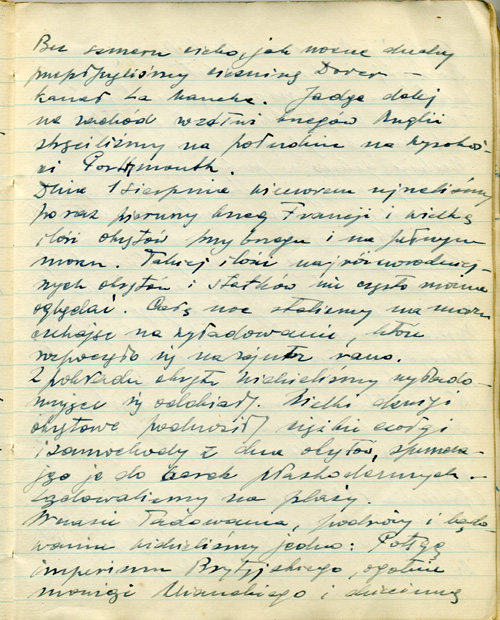 Bez szmeru cicho, jak nocne duchy
przepłynęliśmy cieśninę Dover –
kanał La Manche. Jadąc dalej
na zachód wzdłuż brzegów Anglii
skręciliśmy na południe na wysokoś-
ci Portsmouth.
Dnia 1 sierpnia wieczorem ujrzeliśmy
po raz pierwszy brzeg Francji i wielką
ilość okrętów przy brzegu i na pełnym
morzu. Takiej ilości najróżnorodniej-
szych okrętów i statków nie często można
oglądać. Całą noc staliśmy na morzu
czekając na wyładowanie, które
rozpoczęło się nazajutrz rano.
Z pokładu okrętu widzieliśmy wyłado-
wujące się oddziały. Wielki dźwigi
okrętowe podnosiły ciężkie czołgi
i samochody z dna okrętów, spuszcza-
jąc je do barek płaskodennych. –
Lądowaliśmy na plaży.
W czasie ładowania, podróży i lądo-
wania widzieliśmy jedno: Potęgę
imperium Brytyjskiego, ogólnie
mówiąc i